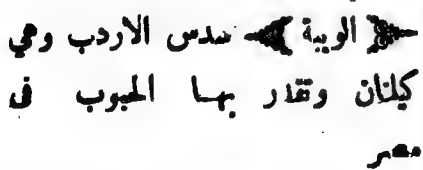 ﴿ الويبة ﴾ سدس الاردب وهي
كيلتان وتقدر بها الحبوب فى
مصر